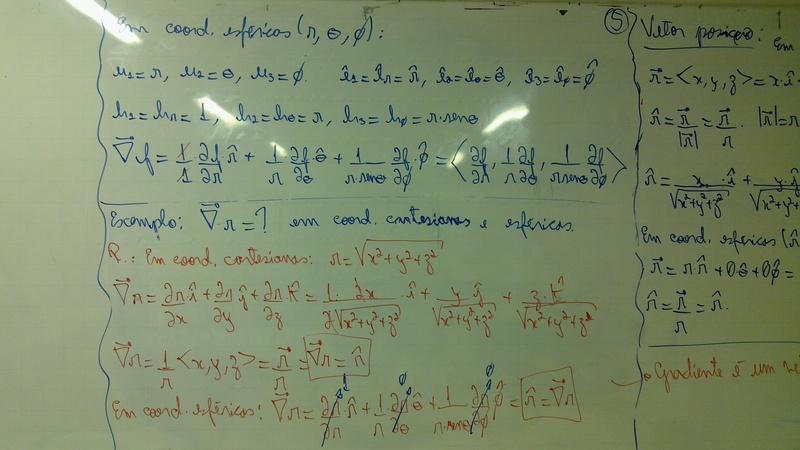 Em coord. esféricas (r, θ, φ):
u₁ = r, u₂ = θ, u₃ = φ. ê₁ = ê_r = r̂, ê₂ = ê_θ = θ̂, ê₃ = ê_φ = φ̂
h₁ = h_r = 1, h₂ = h_θ = r, h₃ = h_φ = r·senθ
∇⃗f = 1/1 ∂f/∂r r̂ + 1/r ∂f/∂θ·θ̂ + 1/(r·senθ) ∂f/∂φ·φ̂ = <∂f/∂r, 1/r ∂f/∂θ, 1/(r·senθ) ∂f/∂φ>
Exemplo: ∇⃗r = ? em coord. cartesianas e esféricas.
R.: Em coord. cartesianas: r = √(x²+y²+z²)
∇⃗r = ∂r/∂x·î + ∂r/∂y ĵ + ∂r/∂z k̂ = 1·2x/(2√(x²+y²+z²))·î + y·ĵ/√(x²+y²+z²) + z·k̂/√(x²+y²+z²)
∇⃗r = 1/r <x, y, z> = r⃗/r = ∇⃗r = r̂
Em coord. esféricas: ∇⃗r = ∂r/∂r 1·r̂ + 1/r·∂r/∂θ 0 θ̂ + 1/(r·senθ) ∂r/∂φ 0 φ̂ = r̂ = ∇⃗r
5
Vetor posição: Em
r⃗ = <x, y, z> = x·î
r̂ = r⃗/|r⃗| = r⃗/r. |r⃗| = r
r̂ = x·î/√(x²+y²+z²) + y·ĵ/√(x²+y²
Em coord. esféricas (r̂
r⃗ = r·r̂ + 0θ̂ + 0φ̂ =
r̂ = r⃗/r = r̂.
Gradiente é um